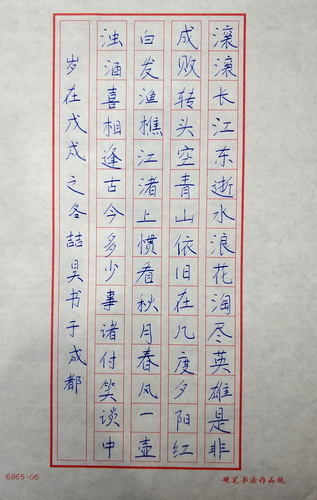 滚滚长江东逝水浪花淘尽英雄是非
成败转头空青山依旧在几度夕阳红
白发渔樵江渚上惯看秋月春风一壶
浊酒喜相逢古今多少事诸付笑谈中
岁在戊戌之冬喆昊书于成都
6865-06
硬笔书法作品纸